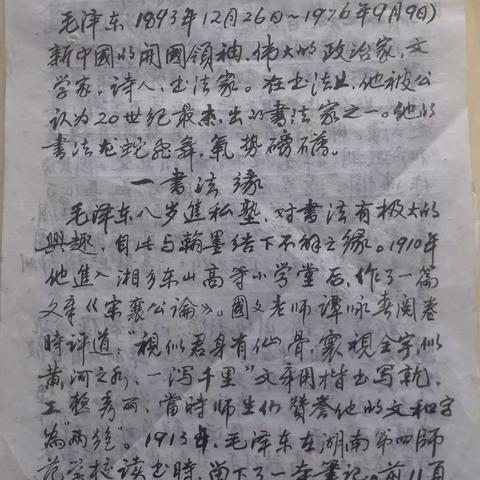 毛泽东1893年12月26日~1976年9月9日)
新中國的開國領袖、偉大的政治家、文
学家、诗人、书法家。在书法上,他被公
认为20世纪最杰出的書法家之一。他的
書法龙蛇飛舞,氣势磅礴。
一書法缘
毛泽东八岁進私塾,对書法有极大的
興趣,自此与翰墨结下不解之缘。1910年
他進入湘乡东山高等小学堂后,作了一篇
文章《宋襄公論》。國文老师譚咏春阅卷
時评道:"視似君身有仙骨,寰視全宇,似
黄河之水,一泻千里"文章用楷书写就,
工穩秀丽,當時师生们贊誉他的文和字
為"两绝"。1913年,毛泽东在湖南第四師
范学校读书時,留下了一本筆記。前11頁